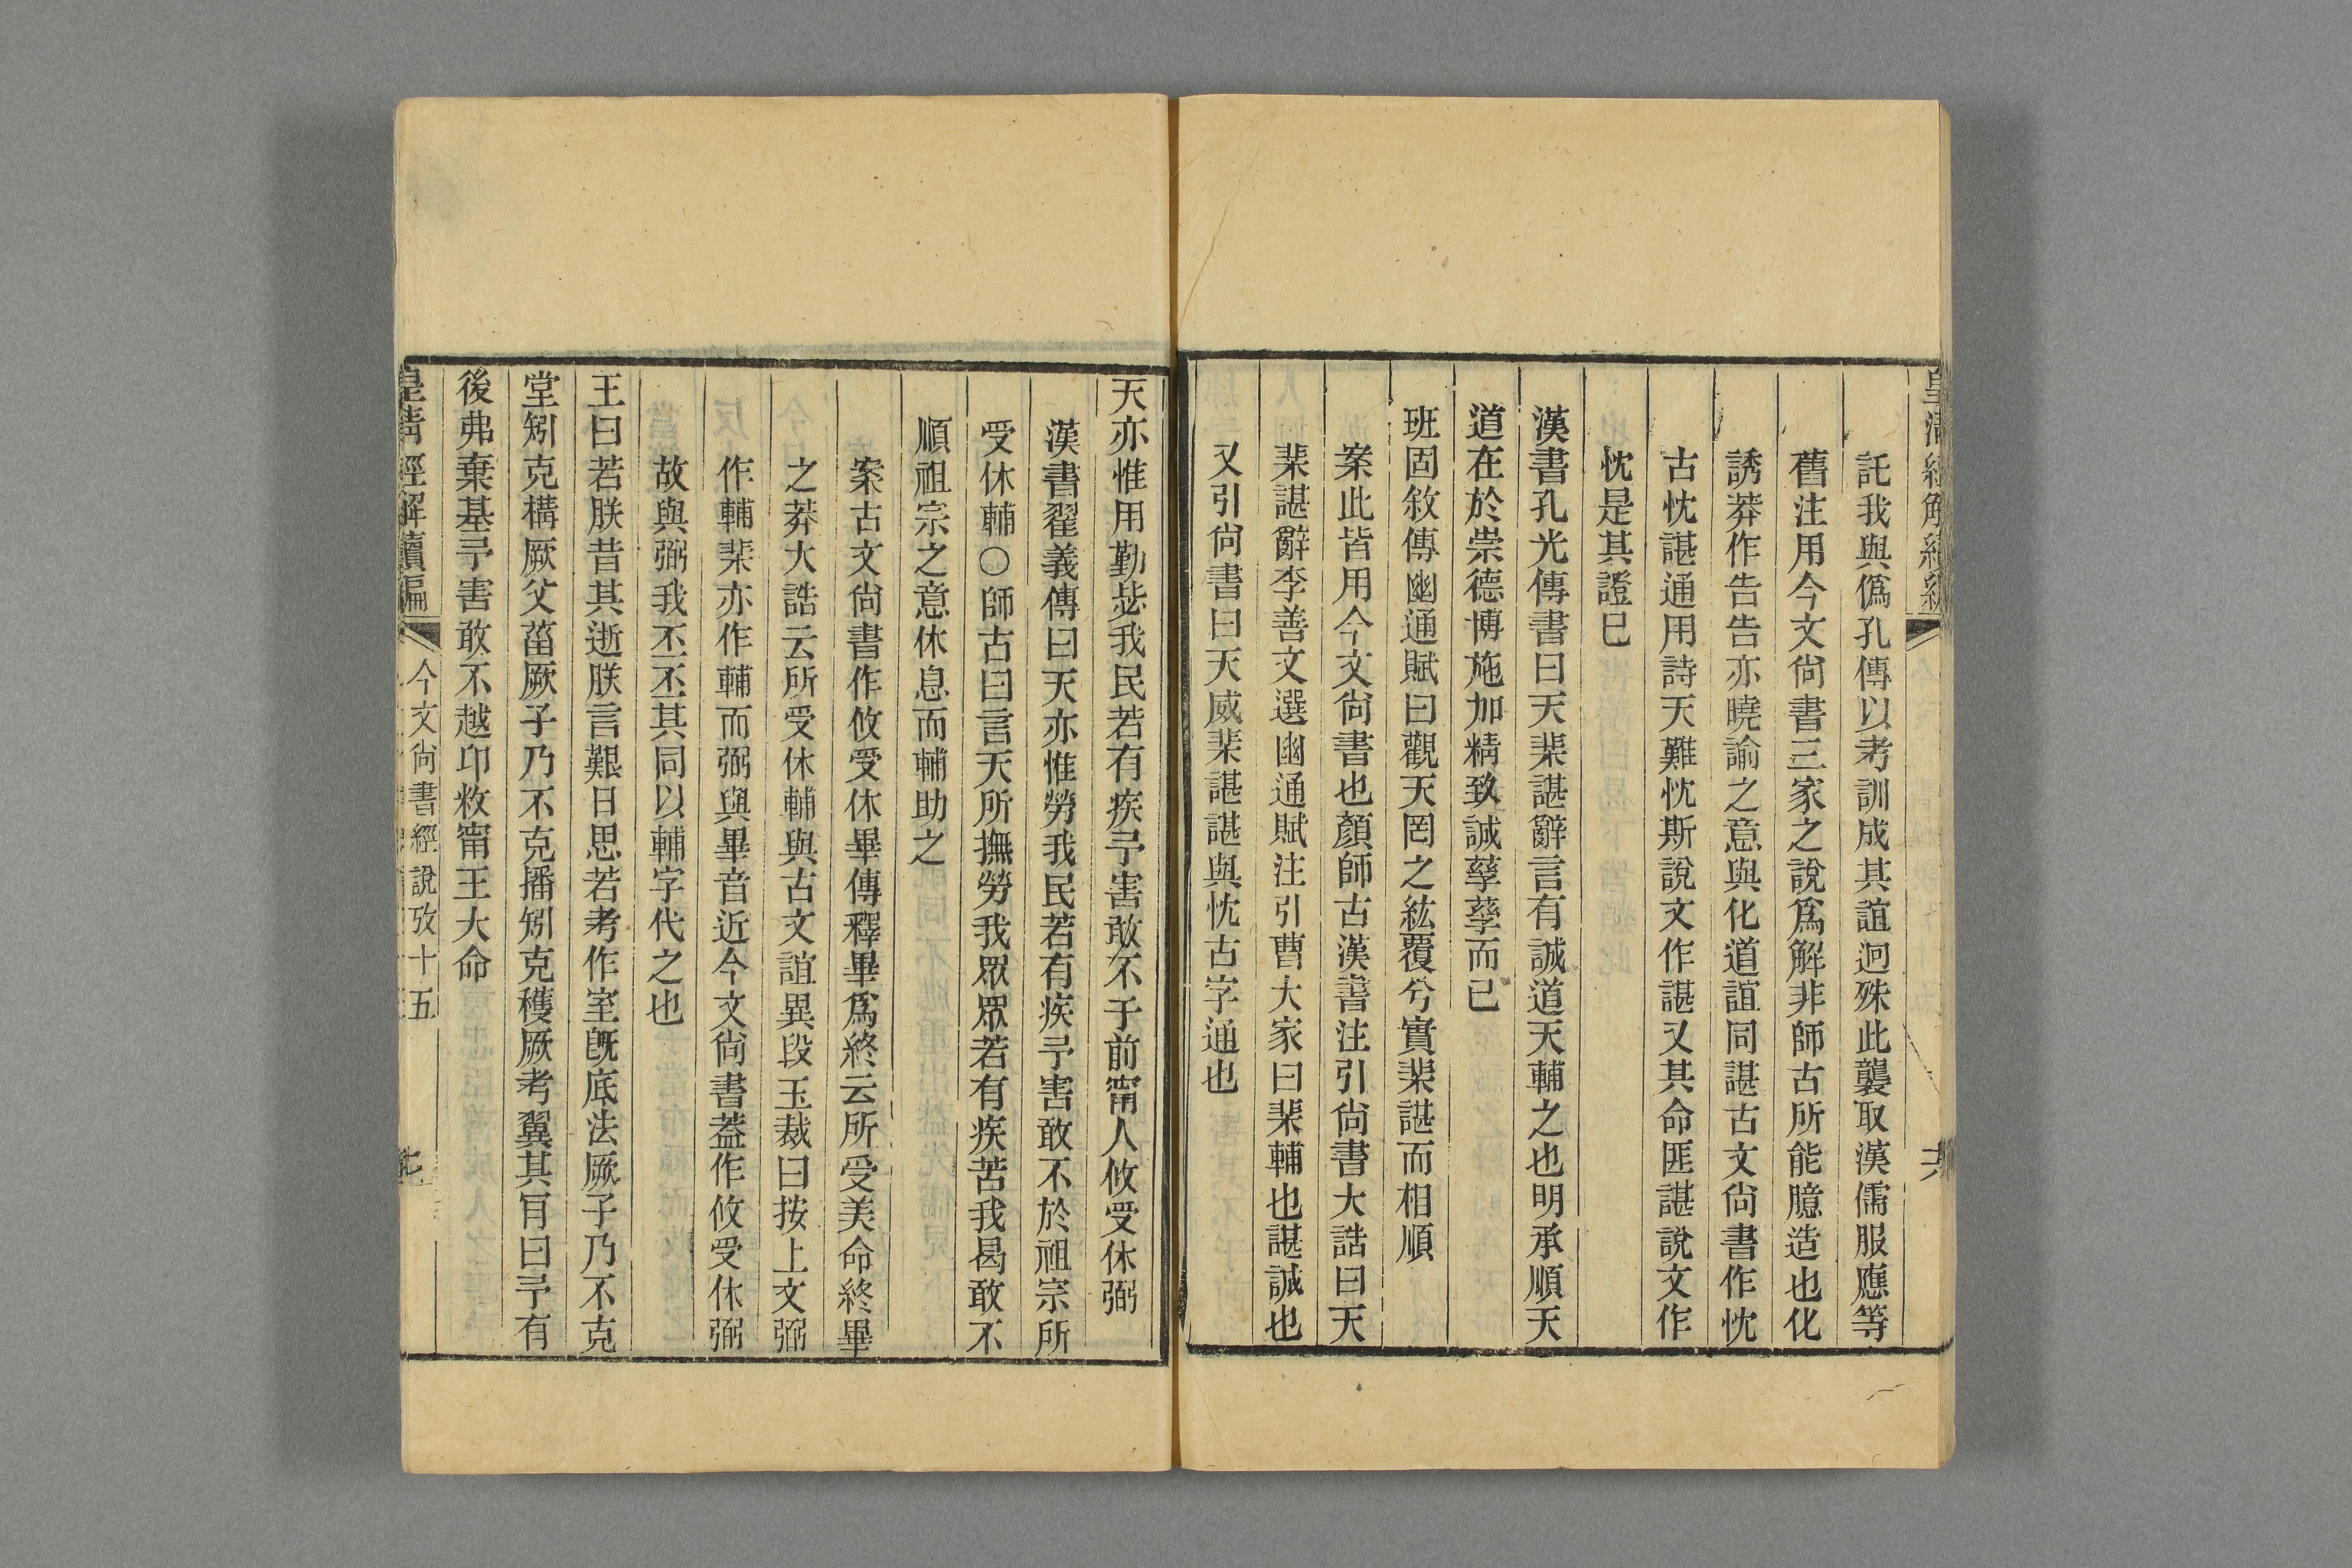 皇清經解續編
六
託我與僞孔傳以考訓成其誼迥殊此襲取漢儒服應等
舊注用今文尙書三家之說爲解非師古所能臆造也化
誘莽作告告亦曉諭之意與化道誼同諶古文尙書作忱
古忱諶通用詩天難忱斯說文作諶又其命匪諶說文作
忱是其證巳
漢書孔光傳書曰天棐諶辭言有誠道天輔之也明承順天
道在於崇德博施加精致誠孳孳而已
班固敘傳幽通賦曰觀天罔之紘覆兮實棐諶而相順
案此皆用今文尙書也顏師古漢書注引尙書大誥曰天
棐諶辭李善文選幽通賦注引曹大家曰棐輔也諶誠也
又引尙書曰天威棐諶諶與忱古字通也
天亦惟用勤毖我民若有疾予害敢不于前甯人攸受休弼
漢書翟義傳曰天亦惟勞我民若有疾予害敢不於祖宗所
受休輔○師古曰言天所撫勞我眾眾若有疾苦我曷敢不
順祖宗之意休息而輔助之
案古文尙書作攸受休畢傳釋畢爲終云所受美命終畢
之莽大誥云所受休輔與古文誼異段玉裁曰按上文弼
作輔棐亦作輔而弼與畢音近今文尙書葢作攸受休弼
故與弼我丕丕其同以輔字代之也
王曰若朕昔其逝朕言艱日思若考作室旣底法厥子乃不克
堂矧克構厥父菑厥子乃不克播矧克穫厥考翼其肎曰予有
後弗棄基予害敢不越卬敉甯王大命
皇清經解續編
今文尙書經說攷十五
七